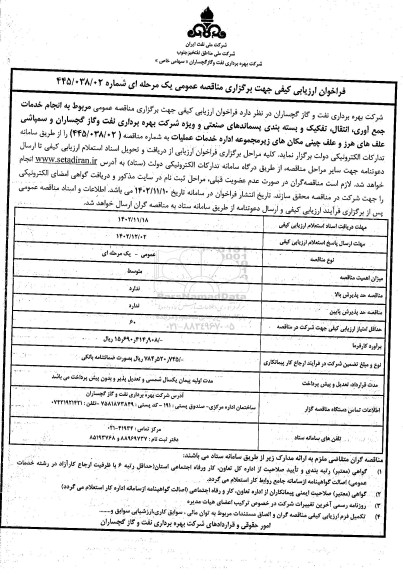 شرکت ملی نفت ایران
شرکت ملی مناطق نفتخیز جنوب
شرکت بهره برداری نفت وگاز گچساران - (سهامی خاص)
فراخوان ارزیابی کیفی جهت برگزاری مناقصه عمومی یک مرحله ای شماره ۴۴۵/۰۳۸/۰۲
شرکت بهره برداری نفت و گاز گچساران در نظر دارد فراخوان ارزیابی کیفی جهت برگزاری مناقصه عمومی مربوط به انجام خدمات
جمع آوری، انتقال، تفکیک و بسته بندی پسماندهای صنعتی و ویژه شرکت بهره برداری نفت وگاز گچساران و سمپاشی
علف های هرز و علف چینی مکان های زیرمجموعه اداره خدمات عملیات به شماره مناقصه ( ۴۴۵/۰۳۸/۰۲) را از طریق سامانه
تدارکات الکترونیکی دولت برگزار نماید. کلیه مراحل برگزاری فراخوان ارزیابی از دریافت و تحویل اسناد استعلام ارزیابی کیفی تا ارسال
دعوتنامه جهت سایر مراحل مناقصه، از طریق درگاه سامانه تدارکات الکترونیکی دولت (ستاد) به آدرس www.setadiran.ir انجام
خواهد شد. لازم است مناقصه‌گران در صورت عدم عضویت قبلی، مراحل ثبت نام در سایت مذکور و دریافت گواهی امضای الکترونیکی
را جهت شرکت در مناقصه محقق سازند. تاریخ انتشار فراخوان در سامانه تاریخ ۱۴۰۲/۱۱/۱۰ می باشد. اطلاعات و اسناد مناقصه عمومی
پس از برگزاری فرآیند ارزیابی کیفی و ارسال دعوتنامه از طریق سامانه ستاد به مناقصه گران ارسال خواهد شد.
مهلت دریافت اسناد استعلام ارزیابی کیفی ۱۴۰۲/۱۱/۱۸
مهلت ارسال پاسخ استعلام ارزیابی کیفی ۱۴۰۲/۱۲/۰۲
نوع مناقصه عمومی - یک مرحله ای
میزان اهمیت مناقصه متوسط
مناقصه حد پذیرش بالا ندارد
مناقصه حد پذیرش پایین ندارد
حداقل امتیاز ارزیابی کیفی جهت شرکت در مناقصه ۶۰
برآورد کارفرما ریال
نوع و مبلغ تضمین شرکت در فرآیند ارجاع کار پیمانکاری ریال بصورت ضمانتنامه بانکی
مدت قرارداد، تعدیل و پیش پرداخت مدت اولیه پیمان یکسال شمسی و تعدیل پذیر و بدون پیش پرداخت می باشد
اطلاعات تماس دستگاه مناقصه گزار آدرس شرکت بهره برداری نفت وگاز گچساران
ساختمان اداره مرکزی- صندوق پستی : ۱۹۱ - کد پستی : ۷۵۸۱۸۷۳۸۴۹ - تلفن :
تلفن های سامانه ستاد مرکز تماس: ۴۱۹۳۴-۰۲۱
دفتر ثبت نام: ۸۸۹۶۹۷۳۷ و ۸۵۱۹۳۷۶۸
مناقصه گران متقاضی ملزم به ارائه مدارک زیر از طریق سامانه ستاد می باشند:
۱) گواهی (معتبر) رتبه بندی و تأیید صلاحیت از اداره کل تعاون، کار ورفاه اجتماعی استان(حداقل رتبه ۶ با ظرفیت ارجاع کارآزاد در رشته خدمات
عمومی) اصالت گواهینامه ازسامانه جامع روابط کار استعلام می گردد.
۲) گواهی (معتبر) صلاحیت ایمنی پیمانکاران از اداره تعاون، کار و رفاه اجتماعی (اصالت گواهینامه ازسامانه اداره کار استعلام می گردد)
۳) روزنامه رسمی آخرین تغییرات شرکت در خصوص ترکیب اعضای هیات مدیره
۴) تکمیل فرم ارزیابی کیفی مناقصه گران و الصاق مستندات مربوط به توان مالی ، سوابق کاری،ارزشیابی سوابق و.......
امور حقوقی و قراردادهای شرکت بهره برداری نفت و گاز گچساران